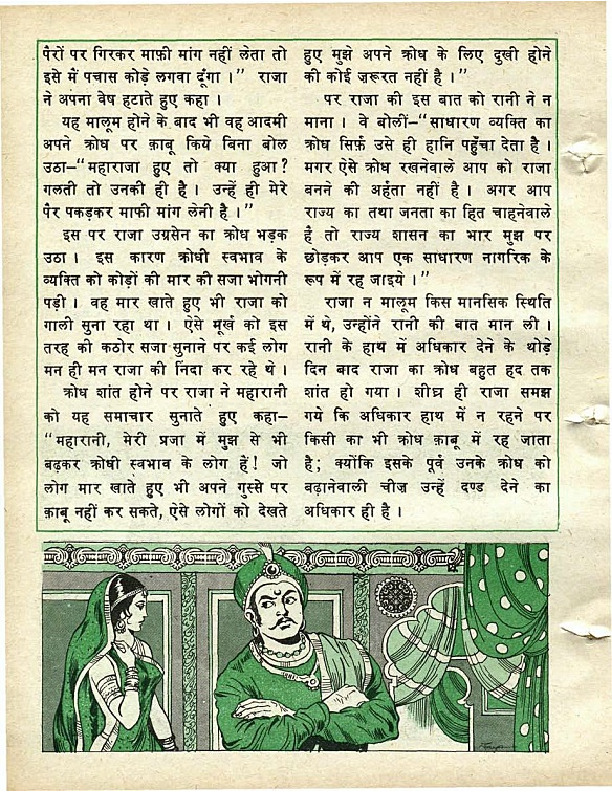 पैरों पर गिरकर माफ़ी मांग नहीं लेता तो
इसे में पचास कोड़े लगवा दूंगा ।” राजा
ने अपना वेष हटाते हुए कहा ।
यह मालूम होने के बाद भी वह आदमी
अपने क्रोध पर क़ाबू किये बिना बोल
उठा–“महाराजा हुए तो क्या हुआ?
गलती तो उनकी ही है । उन्हें ही मेरे
पैर पकड़कर माफी मांग लेनी है ।”
इस पर राजा उग्रसेन का क्रोध भड़क
उठा । इस कारण क्रोधी स्वभाव के
व्यक्ति को कोड़ों की मार की सजा भोगनी
पड़ी । वह मार खाते हुए भी राजा को
गाली सुना रहा था । ऐसे मूर्ख को इस
तरह की कठोर सजा सुनाने पर कई लोग
मन ही मन राजा की निंदा कर रहे थे ।
क्रोध शांत होने पर राजा ने महारानी
को यह समाचार सुनाते हुए कहा–
“महारानी, मेरी प्रजा में मुझ से भी
बढ़कर क्रोधी स्वभाव के लोग हैं! जो
लोग मार खाते हुए भी अपने गुस्से पर
क़ाबू नहीं कर सकते, ऐसे लोगों को देखते
हुए मुझे अपने क्रोध के लिए दुखी होने
की कोई ज़रूरत नहीं है ।”
पर राजा की इस बात को रानी ने न
माना । वे बोलीं–“साधारण व्यक्ति का
क्रोध सिर्फ़ उसे ही हानि पहुँचा देता है ।
मगर ऐसे क्रोध रखनेवाले आप को राजा
बनने की अर्हता नहीं है । अगर आप
राज्य का तथा जनता का हित चाहनेवाले
है तो राज्य शासन का भार मुझ पर
छोड़कर आप एक साधारण नागरिक के
रूप में रह जाइये ।”
राजा न मालूम किस मानसिक स्थिति
में थे, उन्होंने रानी की बात मान ली ।
रानी के हाथ में अधिकार देने के थोड़े
दिन बाद राजा का क्रोध बहुत हद तक
शांत हो गया । शीघ्र ही राजा समझ
गये कि अधिकार हाथ में न रहने पर
किसी का भी क्रोध क़ाबू में रह जाता
है; क्योंकि इसके पूर्व उनके क्रोध को
बढ़ानेवाली चीज़ उन्हें दण्ड देने का
अधिकार ही है ।